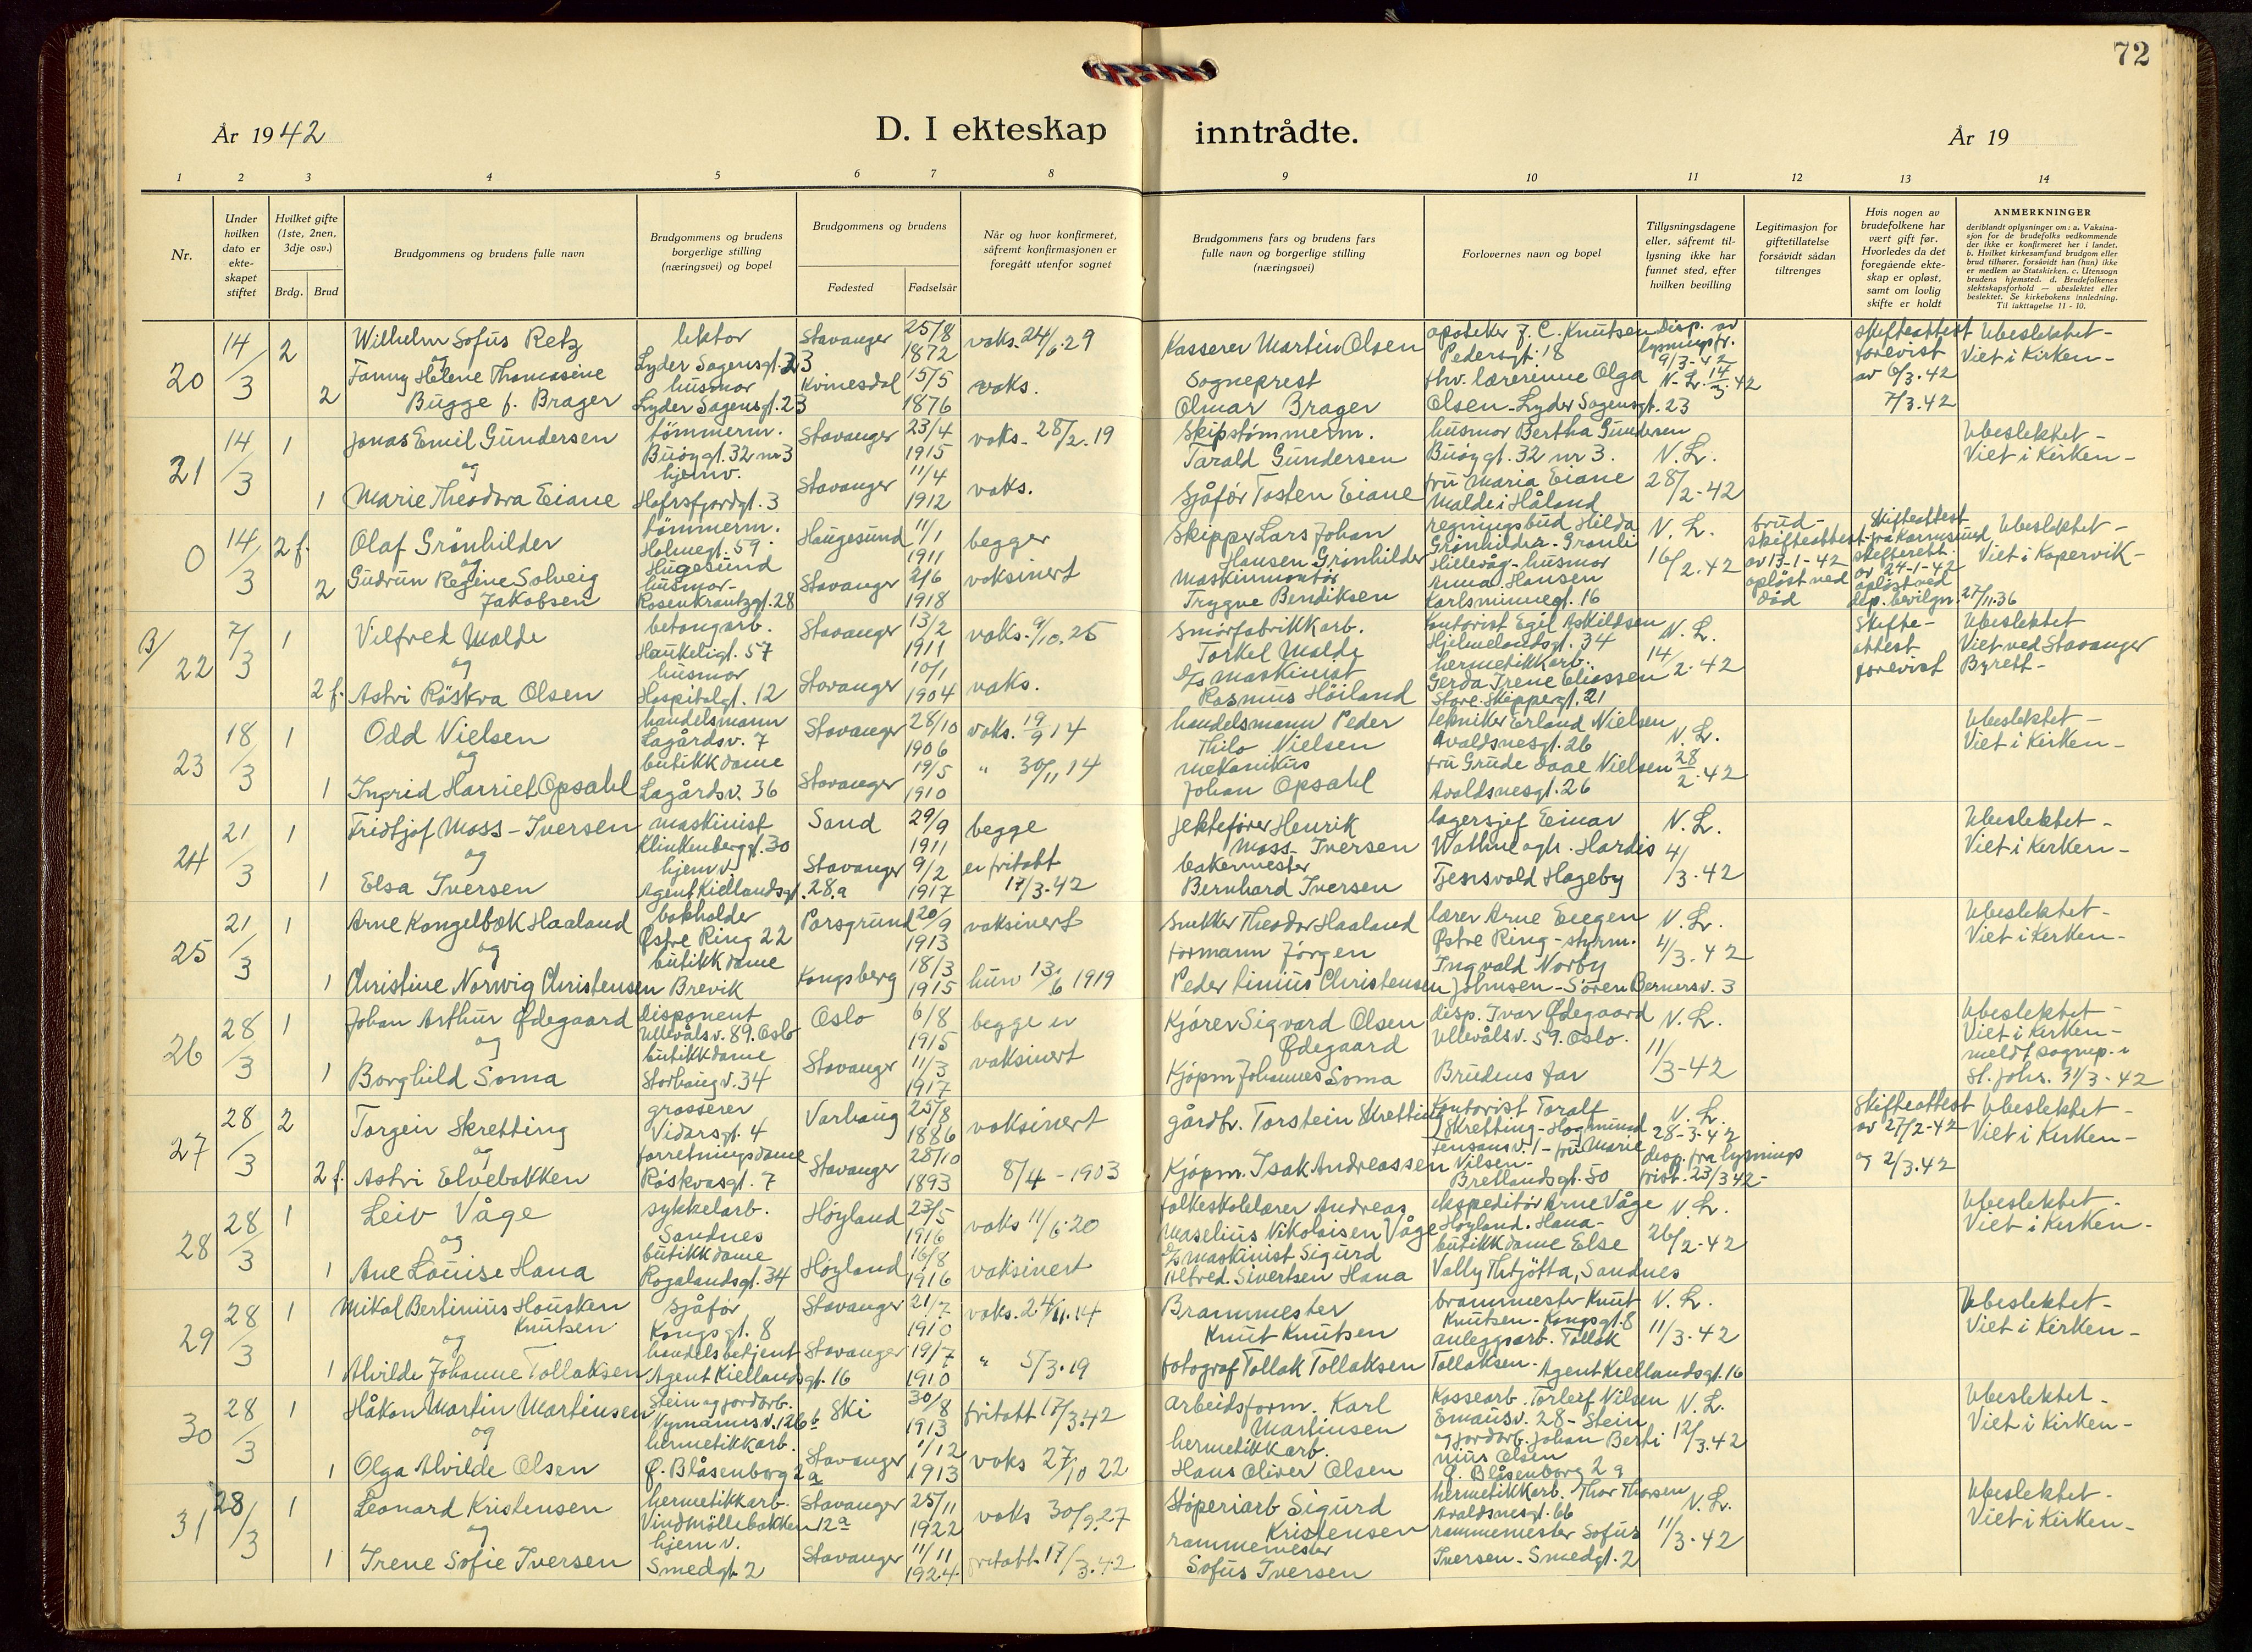 72
År 1942
D. I ekteskap inntrådte.
År 19
1 2 3 4 5 6 7 8 9 10 11 12 13 14
Nr.
Under hvilken dato er ekte-skapet stiftet
Hvilket gifte (1ste, 2nen, 3dje osv.)
Brdg. Brud
Brudgommens og brudens fulle navn
Brudgommens og brudens borgerlige stilling (næringsvei) og bopel
Brudgommens og brudens
Fødested
Fødselsår
Når og hvor konfirmeret, såfremt konfirmasjonen er foregått utenfor sognet
Brudgommens fars og brudens fars fulle navn og borgerlige stilling (næringsvei)
Forlovernes navn og bopel
Tillysningsdagene eller, såfremt til-lysning ikke har funnet sted, efter hvilken bevilling
Legitimasjon for giftetillatelse forsåvidt sådan tiltrenges
Hvis nogen av brudefolkene har vært gift før. Hvorledes da det foregående ekte-skap er opløst, samt om lovlig skifte er holdt
ANMERKNINGER
deriblandt oplysninger om: a. Vaksina-sjon for de brudefolks vedkommende der ikke er konfirmeret her i landet. b. Hvilket kirkesamfund brudgom eller brud tilhører, forsåvidt han (hun) ikke er medlem av Statskirken. c. Utensogn brudens hjemsted. d. Brudefolkenes slektskapsforhold — ubeslektet eller beslektet. Se kirkebokens innledning. Til iakttagelse 11 - 10.
20 14/3 2 Wilhelm Sofus Retz lektor Lyder Sagensgt. 23 Stavanger 25/8 1872 vaks. 24/6.29 Kasserer Martin Olsen apoteker J. C. Knutsen Pedersgt. 18 Disp. av lysningsfr. 9/3-42 skifteattest forevist av 6/3.42 Ubeslektet - Viet i Kirken -
og
2 Fanny Helene Thomasine Bugge f. Brager husmor Lyder Sagensgt. 23 Kvinesdal 15/5 1876 vaks. Sogneprest Olmar Brager fhv. lærerinne Olga Olsen - Lyder Sagensgt. 23 N. L. 14/3.42 7/3.42
21 14/3 1 Jonas Emil Gundersen tömmerm. Buöygt. 32 nr 3 Stavanger 23/4 1915 vaks - 28/2.19 Skipstömmerm. Tarald Gundersen husmor Bertha Gundersen Buöygt. 32 nr 3. N. L. 28/2-42 Ubeslektet - Viet i Kirken -
og
1 Marie Theodora Eiane hjemv. Hafrsfjordgt. 3 Stavanger 11/4 1912 vaks. Sjåfør Tosten Eiane fru Maria Eiane Malde i Håland
0 14/3 2 f. Olaf Grönhilder tömmerm. Holmegt. 59 Haugesund Haugesund 11/1 1911 begger vaksinert Skipper Lars Johan Hansen Grönhilder regningsbud Hilda Grönhilder - Granli Hillevåg - husmor N. L. 16/2.42 brud - skifteattest av 13-1-42 oplöst ved död Skifteattest fra Karmsund skifterett av 24-1-42 oplöst ved dep. bevilgn. 27/11.36 Ubeslektet - Viet i Kopervik -
og
2 Gudrun Regine Solveig Jakobsen husmor - Rosenkrantzgt. 28 Stavanger 2/6 1918 Maskinmontör Trygve Bendiksen Anna Hansen Karlsminnegt. 16
B/ 22 7/3 1 Vilfred Malde betongarb. Haukeligt. 57 Stavanger 13/2 1911 vaks. 9/10.25 Smörfabrikkarb. Torkel Malde Kontorist Egil Askildsen Hjelmelandsgt. 34 N. L. 14/2.42 Skifte-attest forevist Ubeslektet Viet ved Stavanger Byrett -
og
2 f. Astri Röskva Olsen husmor Hospitalgt. 12 Stavanger 10/1 1904 vaks. D/s maskinist Rasmus Höiland hermetikkarb. Gerda Irene Eliassen Store Skippergt. 21
23 18/3 1 Odd Nielsen handelsmann Lagårdsv. 7 Stavanger 28/10 1906 vaks. 19/9 14 handelsmann Peder Thilo Nielsen tekniker Erland Nielsen Avaldsnesgt. 26 N. L. 28/2.42 Ubeslektet - Viet i Kirken -
og
1 Ingrid Harriet Opsahl butikkdame Lagårdsv. 36 Stavanger 19/5 1910 " 30/11 14 mekanikus Johan Opsahl fru Grude Daae Nielsen Avaldsnesgt. 26
24 21/3 1 Fridtjof Moss-Iversen maskinist Klinkenberggt. 30 Sand 29/9 1911 begge er fritatt 17/3.42 jektefører Henrik Moss-Iversen lagersjef Einar Wathne ogh. Hardis Tjensvold Hageby N. L. 4/3.42 Ubeslektet - Viet i Kirken -
og
1 Elsa Iversen hjemv. Agent Kiellandsgt. 28.a Stavanger 9/2 1917 bakermester Bernhard Iversen
25 21/3 1 Arne Kongelbæk Haaland bokholder Østre Ring 22 Porsgrund 20/9 1913 vaksinert Snekker Theodor Haaland lærer Arne Eiegen Østre Ring - styrm. N. L. 4/3.42 Ubeslektet - Viet i Kirken -
og
1 Christine Norwig Christensen butikkdame Brevik Kongsberg 18/3 1915 hun 13/6 1919 formann Jörgen Peder Linius Christensen Ingvald Norby Johnsen - Sören Berners v. 3
26 28/3 1 Johan Arthur Ødegaard disponent Ullevålsv. 89. Oslo Oslo 6/8 1915 begge er vaksinert Kjörer Sigvard Olsen Ødegaard disp. Ivar Ødegaard Ullevålsv. 59. Oslo. N. L. 11/3-42 Ubeslektet - Viet i Kirken - meldt sognep. i St. Johs. 31/3-42
og
1 Borghild Soma butikkdame Storhaugv. 34 Stavanger 11/3 1917 Kjöpm Johannes Soma Brudens far
27 28/3 2 Torgeir Skretting grosserer Vidarsgt. 4 Varhaug 25/8 1886 vaksinert gårdbr. Torstein Skretting Kontorist Toralf Skretting - Hogmund Jensens v. 1 - fru Marie N. L. 28-3-42 disp. fra lysnings frist. 23/3 42 - Skifteattest av 27/2-42 og 2/3.42 Ubeslektet - Viet i Kirken -
og
2 f. Astri Elvebakken forretningsdame Röskvasgt. 7 Stavanger 28/10 1893 8/4 - 1903 Kjöpm. Isak Andreassen Nilsen - Bretlandsgt. 50
28 28/3 1 Leiv Våge sykkelarb. Sandnes Höyland 23/5 1916 vaks 11/6.20 folkeskolelærer Andreas Maselius Nikolaisen Våge ekspeditör Arne Våge Höyland. Hana - N. L. 26/2-42 Ubeslektet - Viet i Kirken -
og
1 Ane Louise Hana butikkdame Rogalandsgt. 34 Höyland 16/8 1916 vaksinert D/s maskinist Sigurd Alfred Sivertsen Hana butikkdame Else Vally Thjötta, Sandnes
29 28/3 1 Mikal Bertinius Housken Knutsen sjåför Kongsgt. 8 Stavanger 21/7 1910 vaks. 24/11.14 Brannmester Knut Knutsen brannmester Knut Knutsen - Kongsgt. 8 N. L. 11/3.42 Ubeslektet - Viet i Kirken -
og
1 Alvilde Johanne Tollaksen handelsbetjent Agent Kiellandsgt. 16 Stavanger 19/7 1910 " 5/3.19 fotograf Tollak Tollaksen anleggsarb. Tollak Tollaksen - Agent Kiellandsgt. 16
30 28/3 1 Håkon Martin Martinsen Stein og jordarb. Nymannsv. 126 b Ski 30/8 1913 fritatt 17/3.42 arbeidsform. Karl Martinsen Kassearb. Torleif Nilsen Emausv. 28 - Stein N. L. 12/3.42 Ubeslektet - Viet i Kirken -
og
1 Olga Alvilde Olsen hermetikkarb. Ø. Blåsenborg 2 a Stavanger 1/12 1913 vaks 27/10 22 hermetikkarb. Hans Oliver Olsen og jordarb. Johan Berti nius Olsen Ø. Blåsenborg 2 a
31 28/3 1 Leonard Kristensen hermetikkarb. Vindmöllebakken 12a Stavanger 25/11 1922 vaks 30/9.27 Stöperiarb Sigurd Kristensen hermetikkarb. Thor Thorsen Avaldsnesgt. 66 N. L. 11/3-42 Ubeslektet - Viet i Kirken -
og
1 Irene Sofie Iversen hjemv. Smedgt. 2 Stavanger 11/11 1924 fritatt 17/3.42 rammemester Sofus Iversen rammemester Sofus Iversen - Smedgt. 2